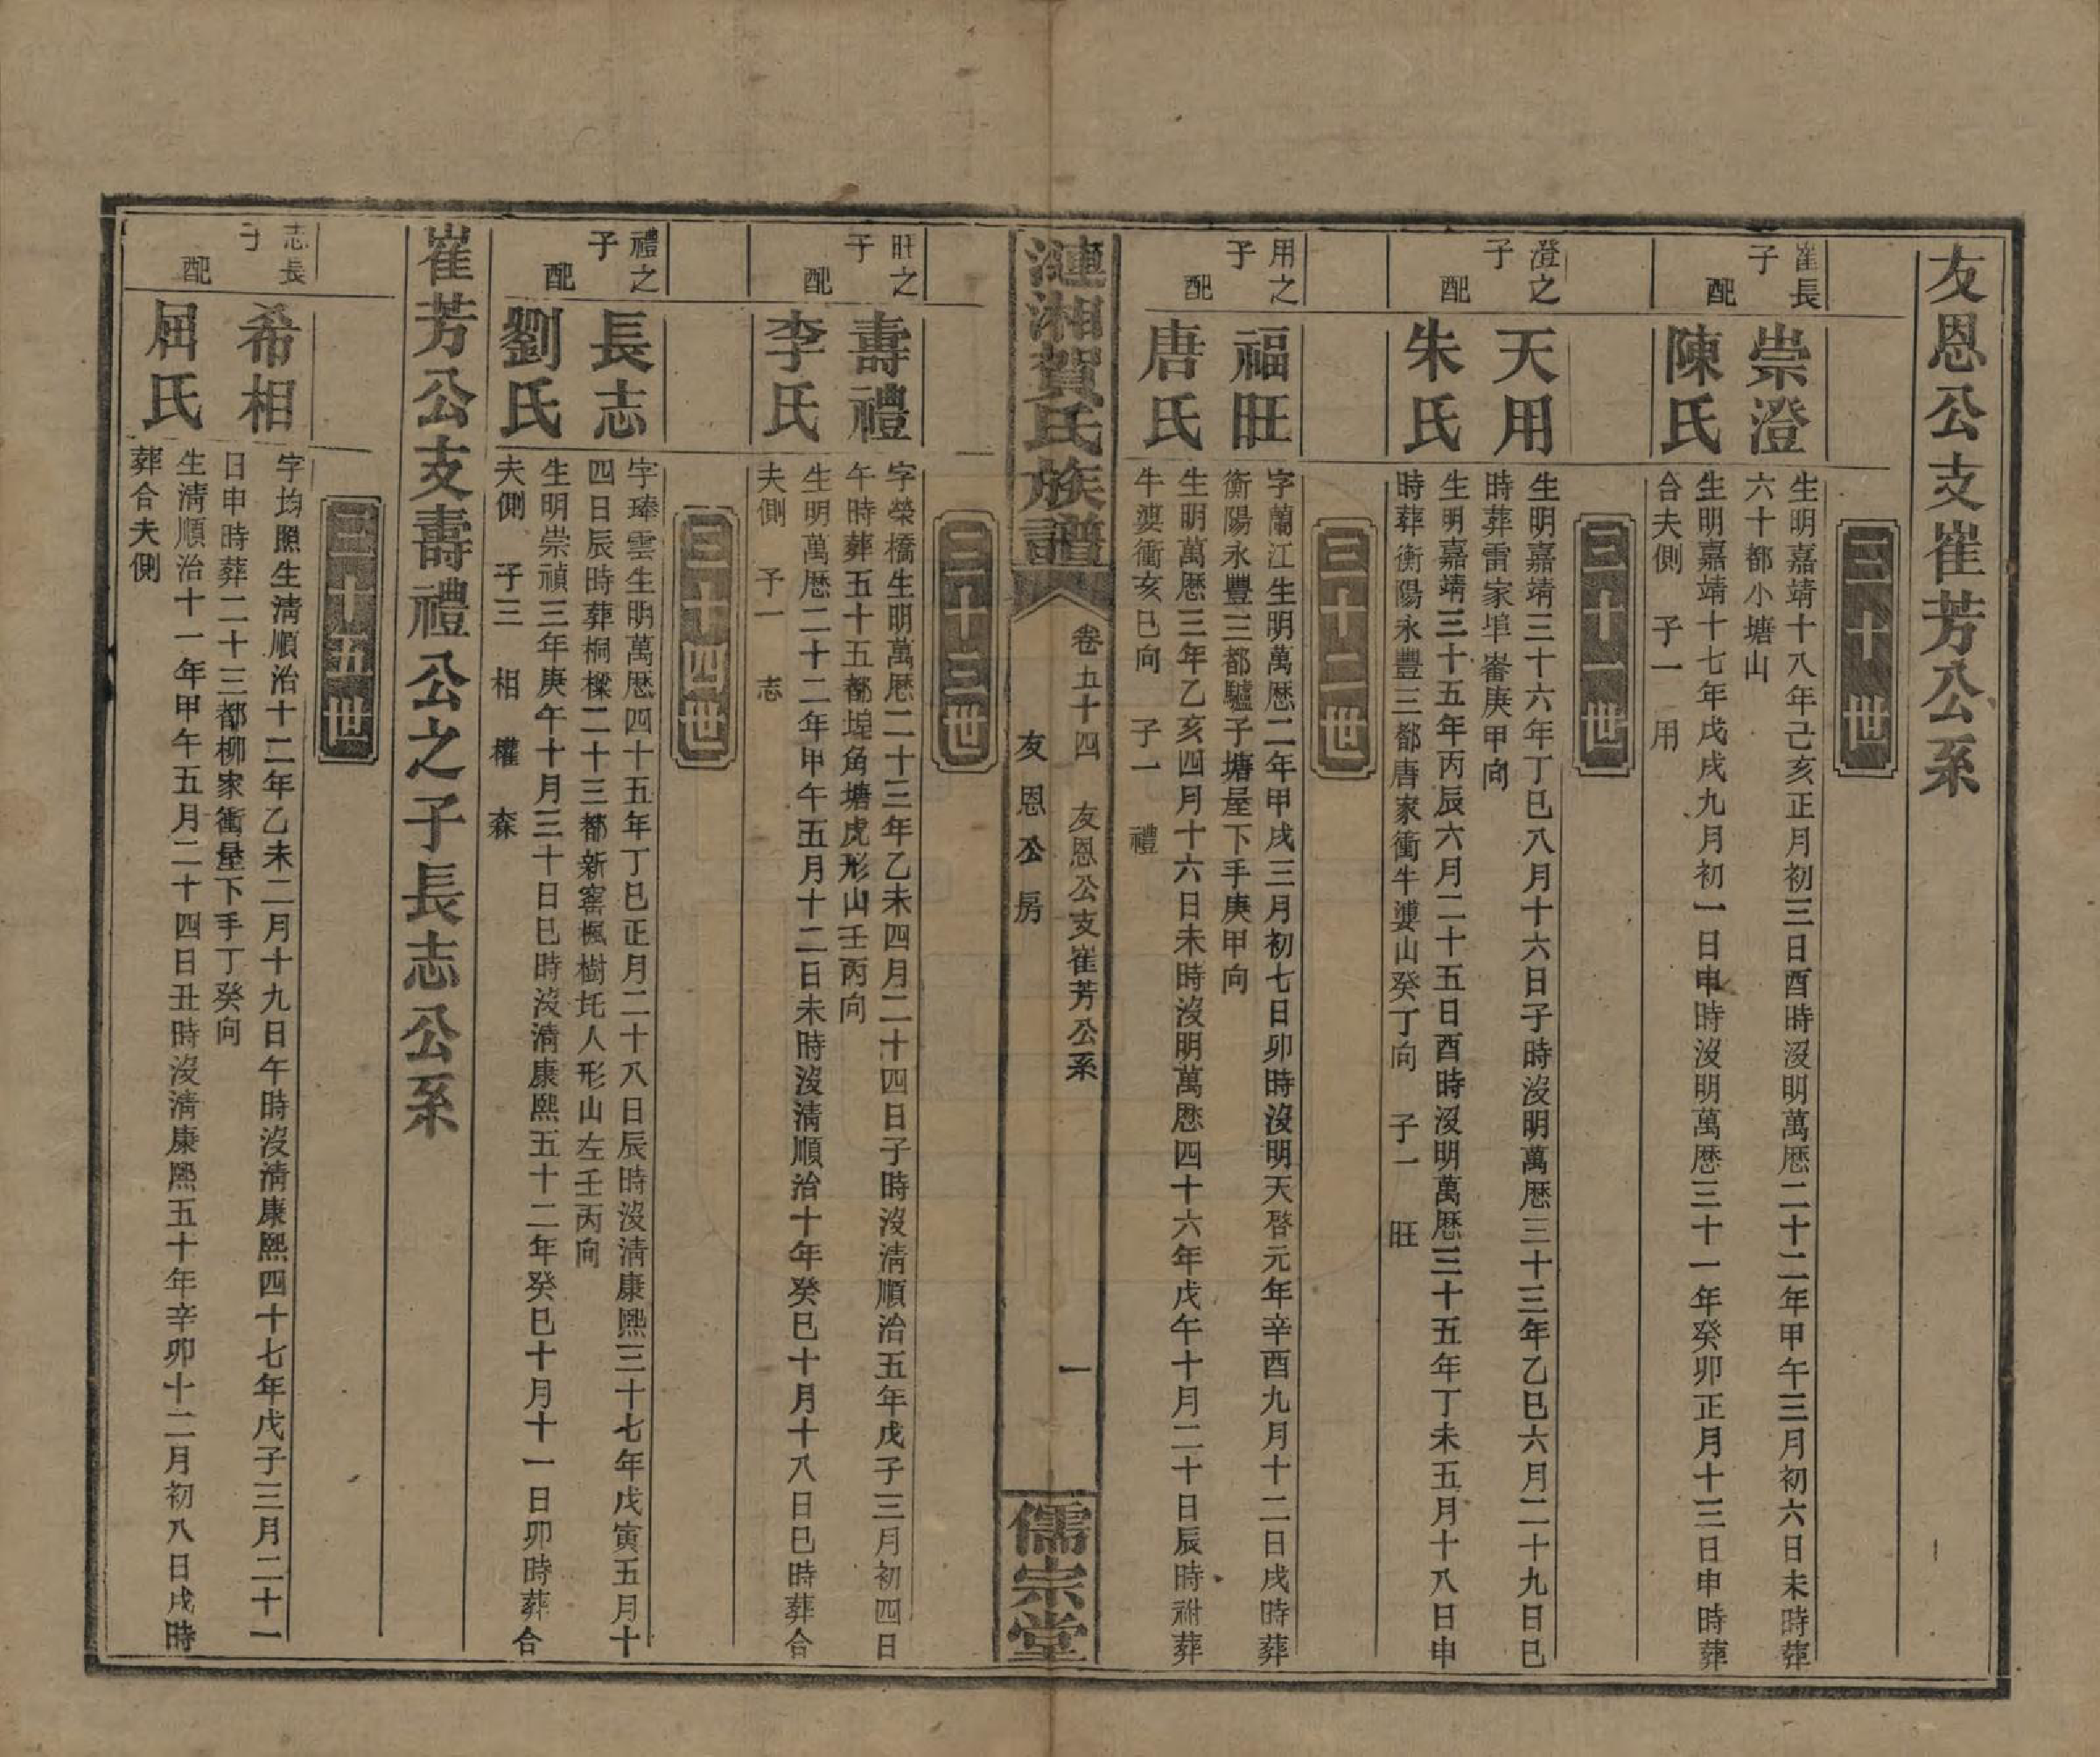 友恩公支崔芳公系
三十世
崔長子
崇澄
生明嘉靖十八年己亥正月初三日酉時沒明萬歷二十二年甲午三月初六日未時葬
六十都小塘山
配
陳氏
生明嘉靖十七年戊戌九月初一日申時沒明萬歷三十一年癸卯正月十三日申時葬
合夫側 子一 用
三十一世
澄之子
天用
生明嘉靖三十六年丁巳八月十六日子時沒明萬歷三十三年乙巳六月二十九日巳
時葬雷家埠嵛庚甲向
配
朱氏
生明嘉靖三十五年丙辰六月二十五日酉時沒明萬歷三十五年丁未五月十八日申
時葬衡陽永豐三都唐家衝牛婆山癸丁向 子一 旺
三十二世
用之子
福旺
字蘭江生明萬歷二年甲戌三月初七日卯時沒明天啓元年辛酉九月十二日戌時葬
衡陽永豐三都驢子塘屋下手庚甲向
配
唐氏
生明萬歷三年乙亥四月十六日未時沒明萬歷四十六年戊午十月二十日辰時祔葬
牛婆衝亥巳向 子一 禮
漣湘賀氏族譜
卷五十四 友恩公支崔芳公系
友恩公房
一
儒宗堂
三十三世
旺之子
壽禮
字榮橋生明萬歷二十三年乙未四月二十四日子時沒清順治五年戊子三月初四日
午時葬五十五都埠角塘虎形山壬丙向
配
李氏
生明萬歷二十二年甲午五月十二日未時沒清順治十年癸巳十月十八日巳時葬合
夫側 子一 志
三十四世
禮之子
長志
字瑧雲生明萬歷四十五年丁巳正月二十八日辰時沒清康熙三十七年戊寅五月十
四日辰時葬桐樑二十三都新窰楓樹圫人形山左壬丙向
配
劉氏
生明崇禎三年庚午十月三十日巳時沒清康熙五十二年癸巳十月十一日卯時葬合
夫側 子三 相 權 森
崔芳公支壽禮公之子長志公系
三十五世
志長子
希相
字均照生清順治十二年乙未二月十九日午時沒清康熙四十七年戊子三月二十一
日申時葬二十三都柳家衝屋下手丁癸向
配
屈氏
生清順治十一年甲午五月二十四日丑時沒清康熙五十年辛卯十二月初八日戌時
葬合夫側